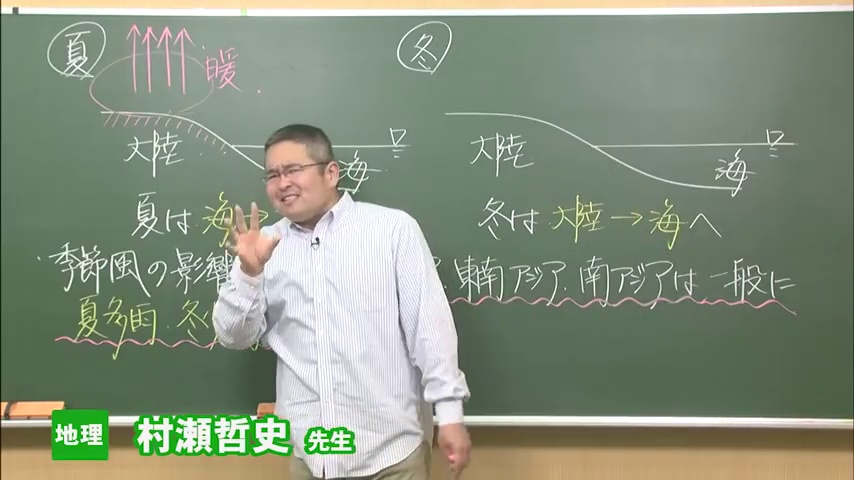 夏
冬
暖
大陸
海
大陸
海
夏は 海→
冬は 大陸→海へ
季節風の影響
東南アジア.南アジアは一般に
夏多雨.冬
地理 村瀬哲史 先生